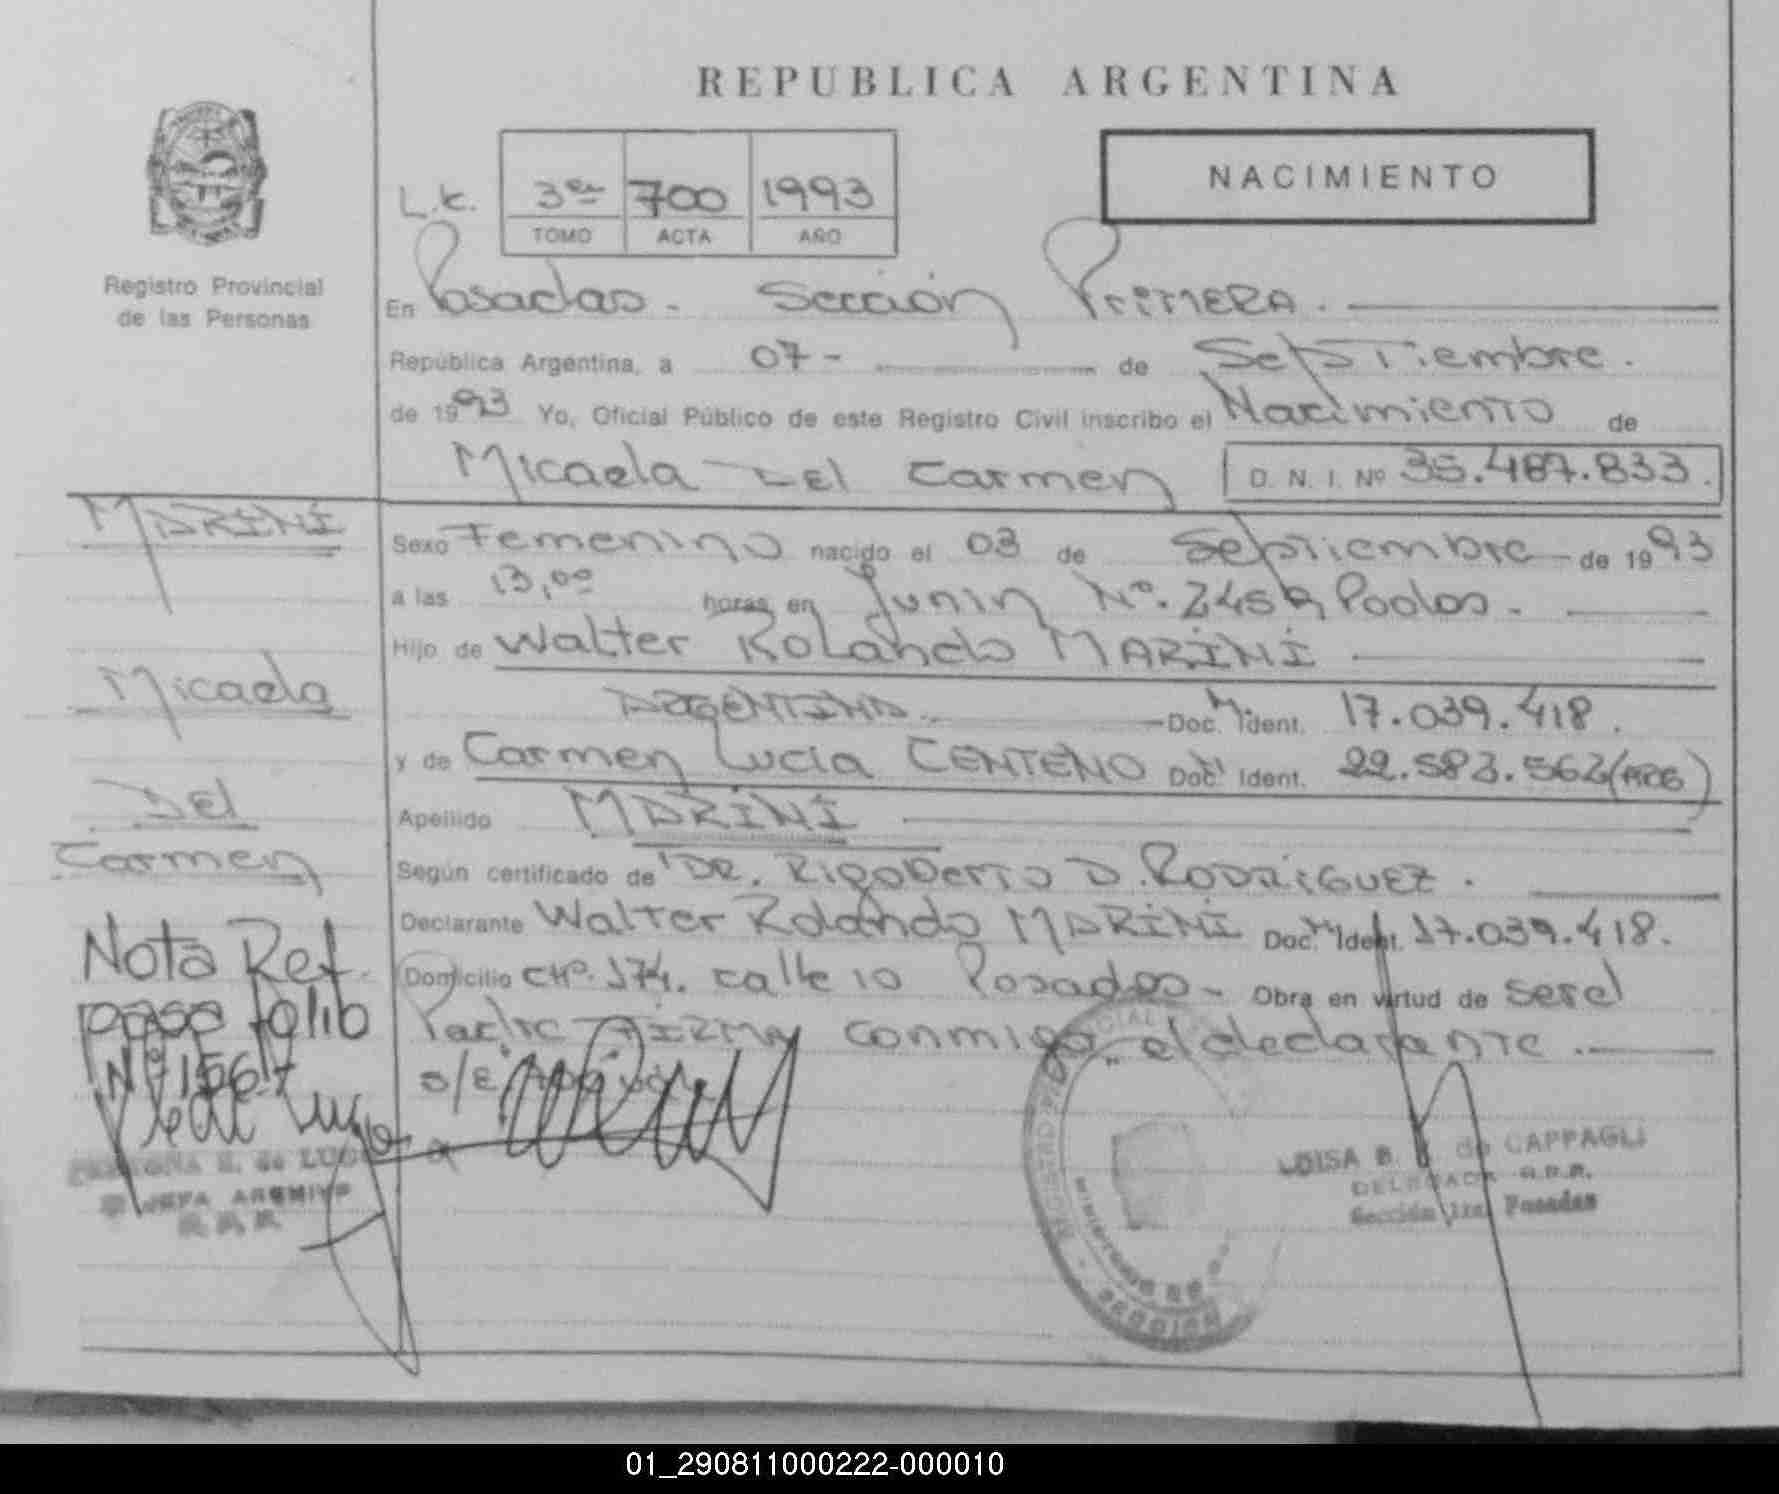 REPUBLICA ARGENTINA
NACIMIENTO
L.c. 3er 700 1993
TOMO ACTA AÑO
Registro Provincial
de las Personas
En Posadas - Sección Primera.
República Argentina, a 07- de Septiembre.
de 1993 Yo, Oficial Público de este Registro Civil inscribo el Nacimiento de
Micaela DEL Carmen D. N. I. Nº 35.487.833.
MARINI
Micaela
DEL
Carmen
Sexo Femenino nacido el 03 de Septiembre de 1993
a las 13,00 horas en Junin Nº. 2459 Posdas.
Hijo de Walter Rolando MARINI
ARGENTINA. Doc. Ident. 17.039.418.
y de Carmen Lucia CENTENO Doc. Ident. 22.583.562 (ARG)
Apellido MARINI
Según certificado de DR. Rigoberto D. RODRIGUEZ.
Declarante Walter Rolando MARINI Doc. Ident. 17.039.418.
Domicilio CHº. 174. calle 10 Posadas - Obra en virtud de ser el
Padre FIRMA conmigo el declarante.
Nota Ref.
pasa folio
Nº 1567
JEFA ARCHIVO
R. P. P.
LUISA B. de CAPPAGLI
DELEGADA R.P.P.
Sección 1ra. Posadas
MINISTERIO DE
01_290811000222-000010